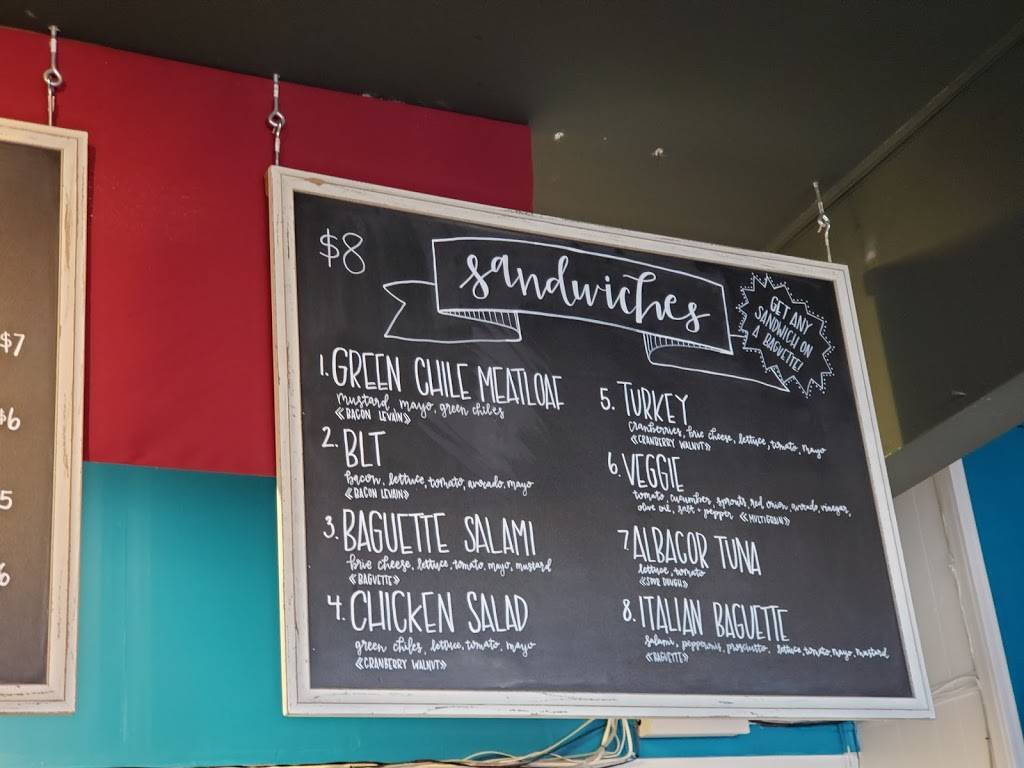 $7
$6
5
6
$8
sandwiches
GET ANY
SANDWICH ON
A BAGUETTE!
1. GREEN CHILE MEATLOAF
mustard, mayo, green chiles
«BACON LEVAIN»
2. BLT
bacon, lettuce, tomato, avocado, mayo
«BACON LEVAIN»
3. BAGUETTE SALAMI
brie cheese, lettuce, tomato, mayo, mustard
«BAGUETTE»
4. CHICKEN SALAD
green chiles, lettuce, tomato, mayo
«CRANBERRY WALNUT»
5. TURKEY
cranberries, brie cheese, lettuce, tomato, mayo
«CRANBERRY WALNUT»
6. VEGGIE
tomato, cucumber, sprouts, red onion, avocado, vinegar,
olive oil, salt + pepper «MULTIGRAIN»
7. ALBACOR TUNA
lettuce, tomato
«SOUR DOUGH»
8. ITALIAN BAGUETTE
salami, pepperoni, prosciutto, lettuce, tomato, mayo, mustard
«BAGUETTE»